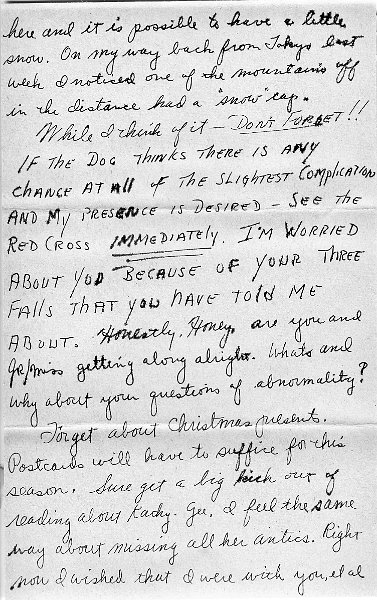 here and it is possible to have a little
snow. On my way back from Tokyo last
week I noticed one of the mountains off
in the distance had a "snow" cap.
While I think of it - DON'T FORGET!!
IF THE DOG THINKS THERE IS ANY
CHANCE AT All OF THE SLIGHTEST COMPLICATION
AND MY PRESENCE IS DESIRED - SEE THE
RED CROSS IMMEDIATELY. I'M WORRIED
ABOUT YOU BECAUSE OF YOUR THREE
FALLS THAT YOU HAVE TOLD ME
ABOUT. Honestly, Honey, are you and
getting along alright. Whats and
why about your questions of abnormality?
Forget about Christmas presents.
Postcards will have to suffice for this
season. Sure get a big kick out of
reading about Kathy. Gee, I feel the same
way about missing all her antics. Right
now I wished that I were with you, et al